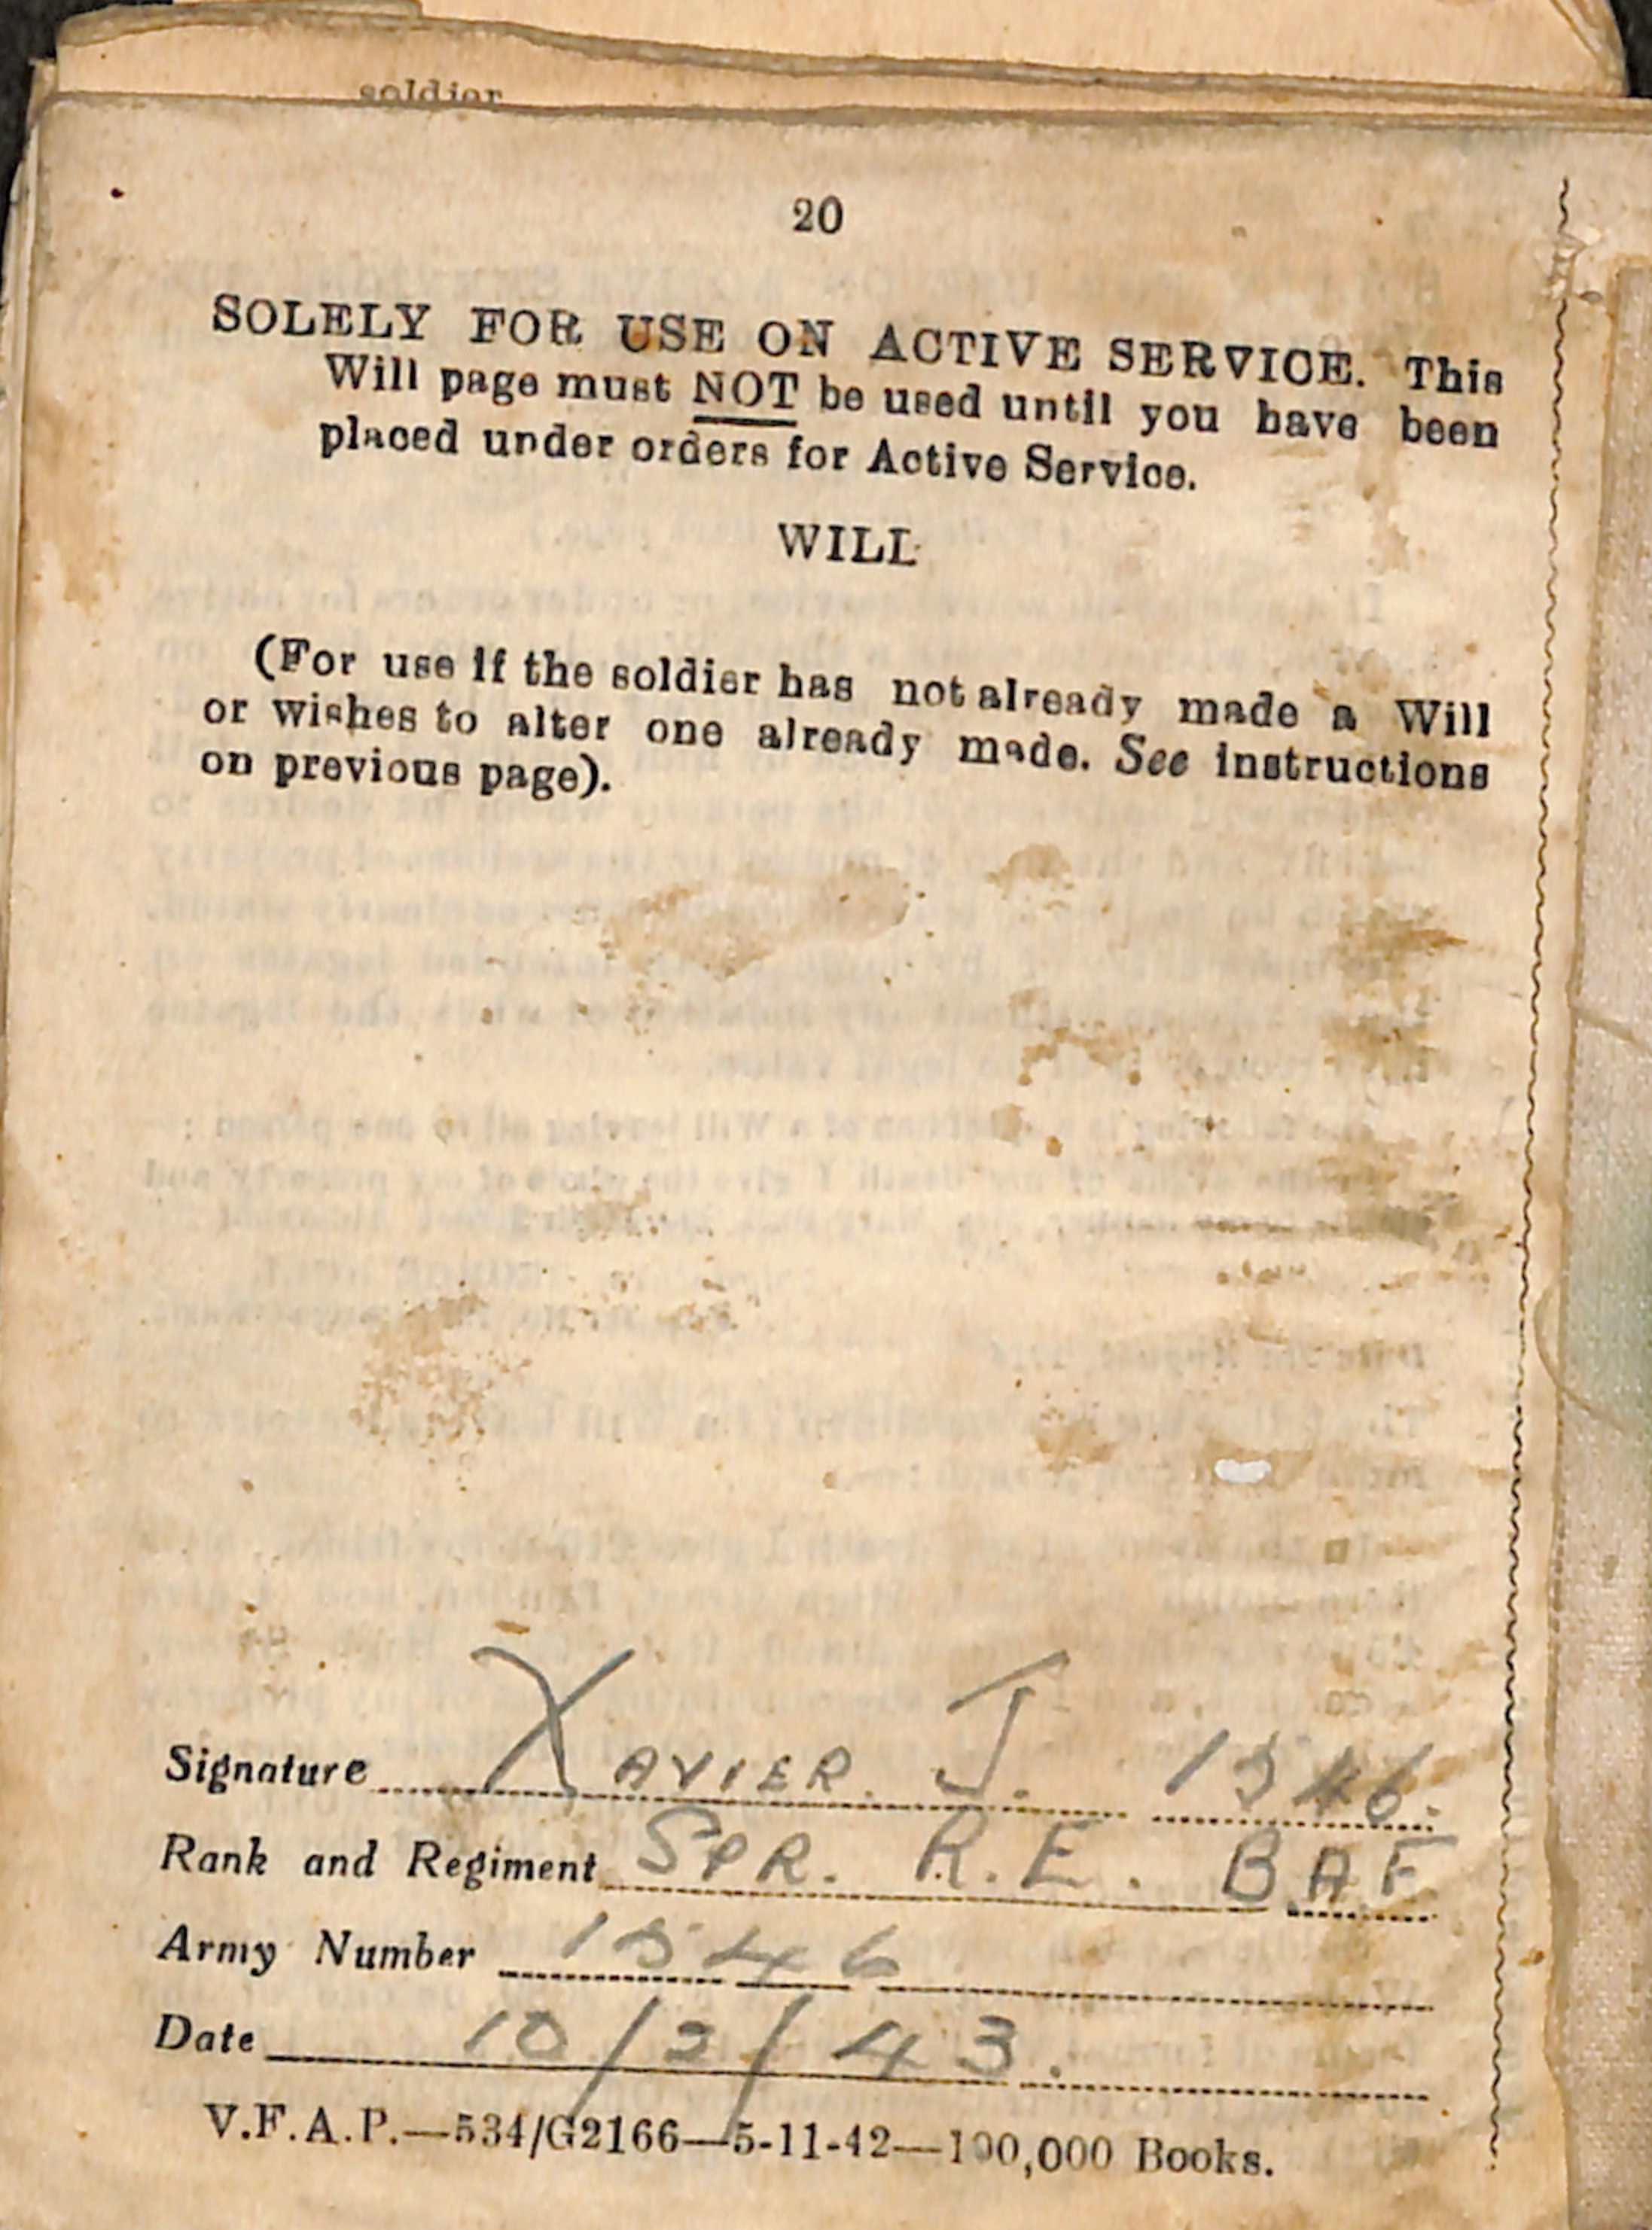 soldier
20
SOLELY FOR USE ON ACTIVE SERVICE. This
Will page must NOT be used until you have been
placed under orders for Active Service.
WILL
(For use if the soldier has not already made a Will
or wishes to alter one already made. See instructions
on previous page).
Signature XAVIER. J. 1546.
Rank and Regiment SPR. R.E. BAF
Army Number 1546
Date 10/2/43.
V.F.A.P.—534/G2166—5-11-42—100,000 Books.